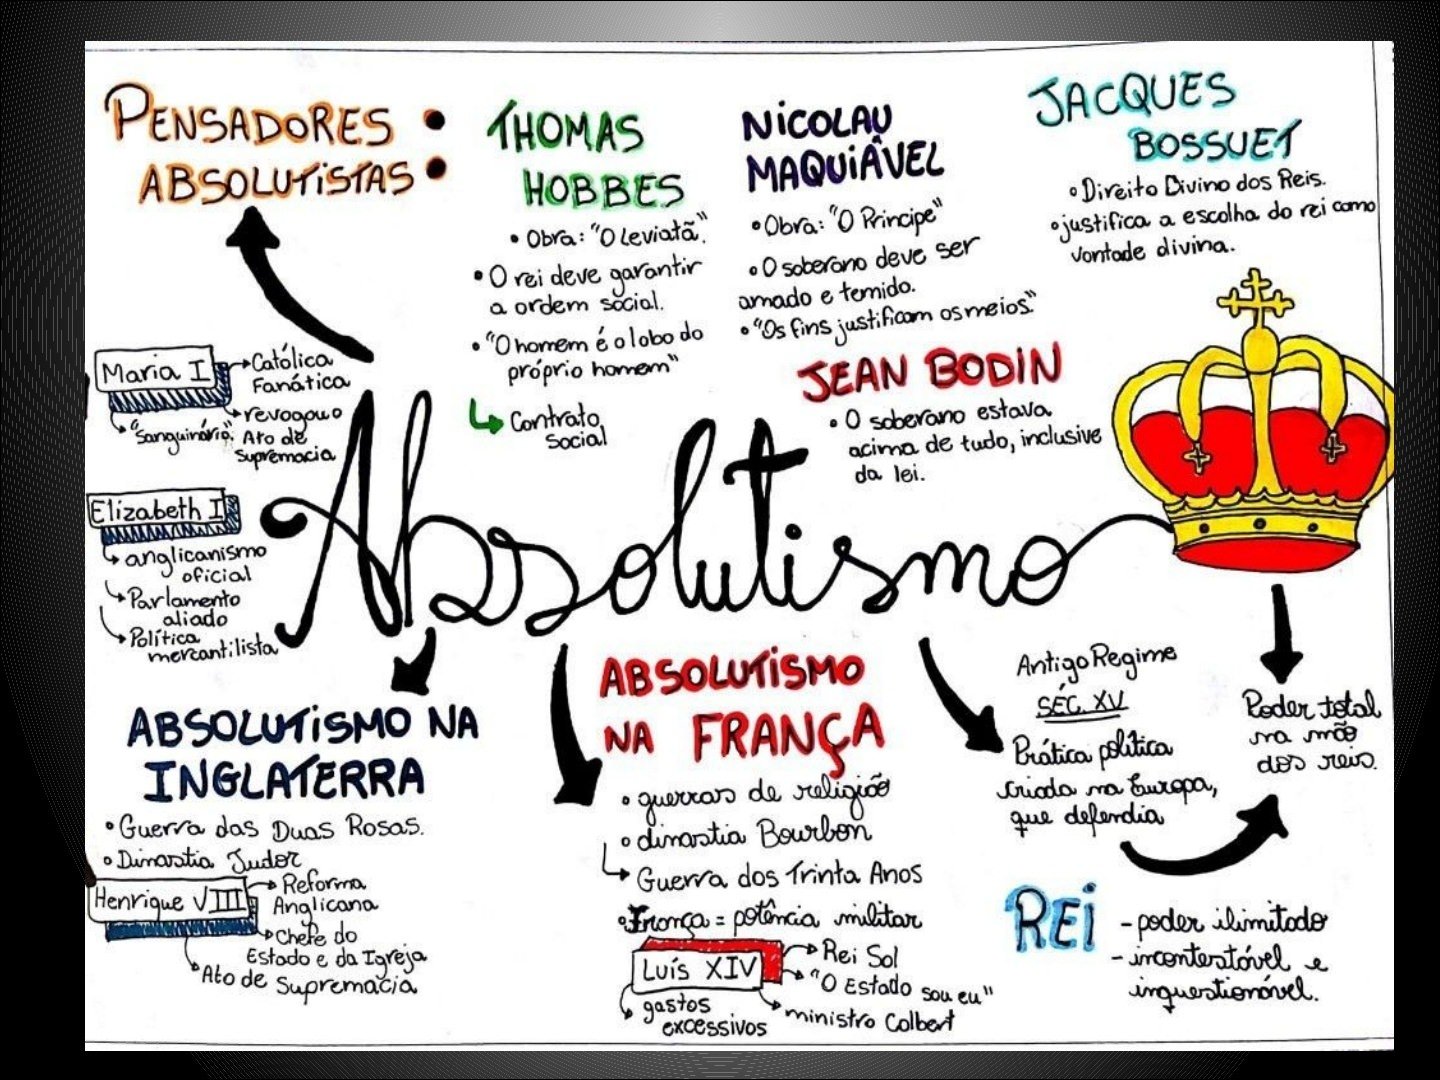 PENSADORES
ABSOLUTISTAS
THOMAS
HOBBES
• Obra: "O Leviatã".
• O rei deve garantir
a ordem social.
• "O homem é o lobo do
próprio homem"
Contrato
social
NICOLAU
MAQUIAVEL
• Obra: "O Príncipe"
• O soberano deve ser
amado e temido.
• "Os fins justificam os meios."
JACQUES
BOSSUET
• Direito Divino dos Reis.
• justifica a escolha do rei como
vontade divina.
JEAN BODIN
• O soberano estava
acima de tudo, inclusive
da lei.
Maria I
Católica
Fanática
revogou o
Ato de
Supremacia
"Sanguinário".
Elizabeth I
anglicanismo
oficial
Parlamento
aliado
Política
mercantilista
Absolutismo
ABSOLUTISMO NA
INGLATERRA
• Guerra das Duas Rosas.
• Dinastia Tudor
Henrique VIII
Reforma
Anglicana
Chefe do
Estado e da Igreja
Ato de Supremacia
ABSOLUTISMO
NA FRANÇA
• guerras de religião
• dinastia Bourbon
Guerra dos Trinta Anos
• França = potência militar
Luís XIV
Rei Sol
"O Estado sou eu"
ministro Colbert
gastos
excessivos
Antigo Regime
SÉC. XV
Prática política
criada na Europa,
que defendia
Poder total
na mão
dos reis.
REI
- poder ilimitado
- incontestável e
inquestionável.